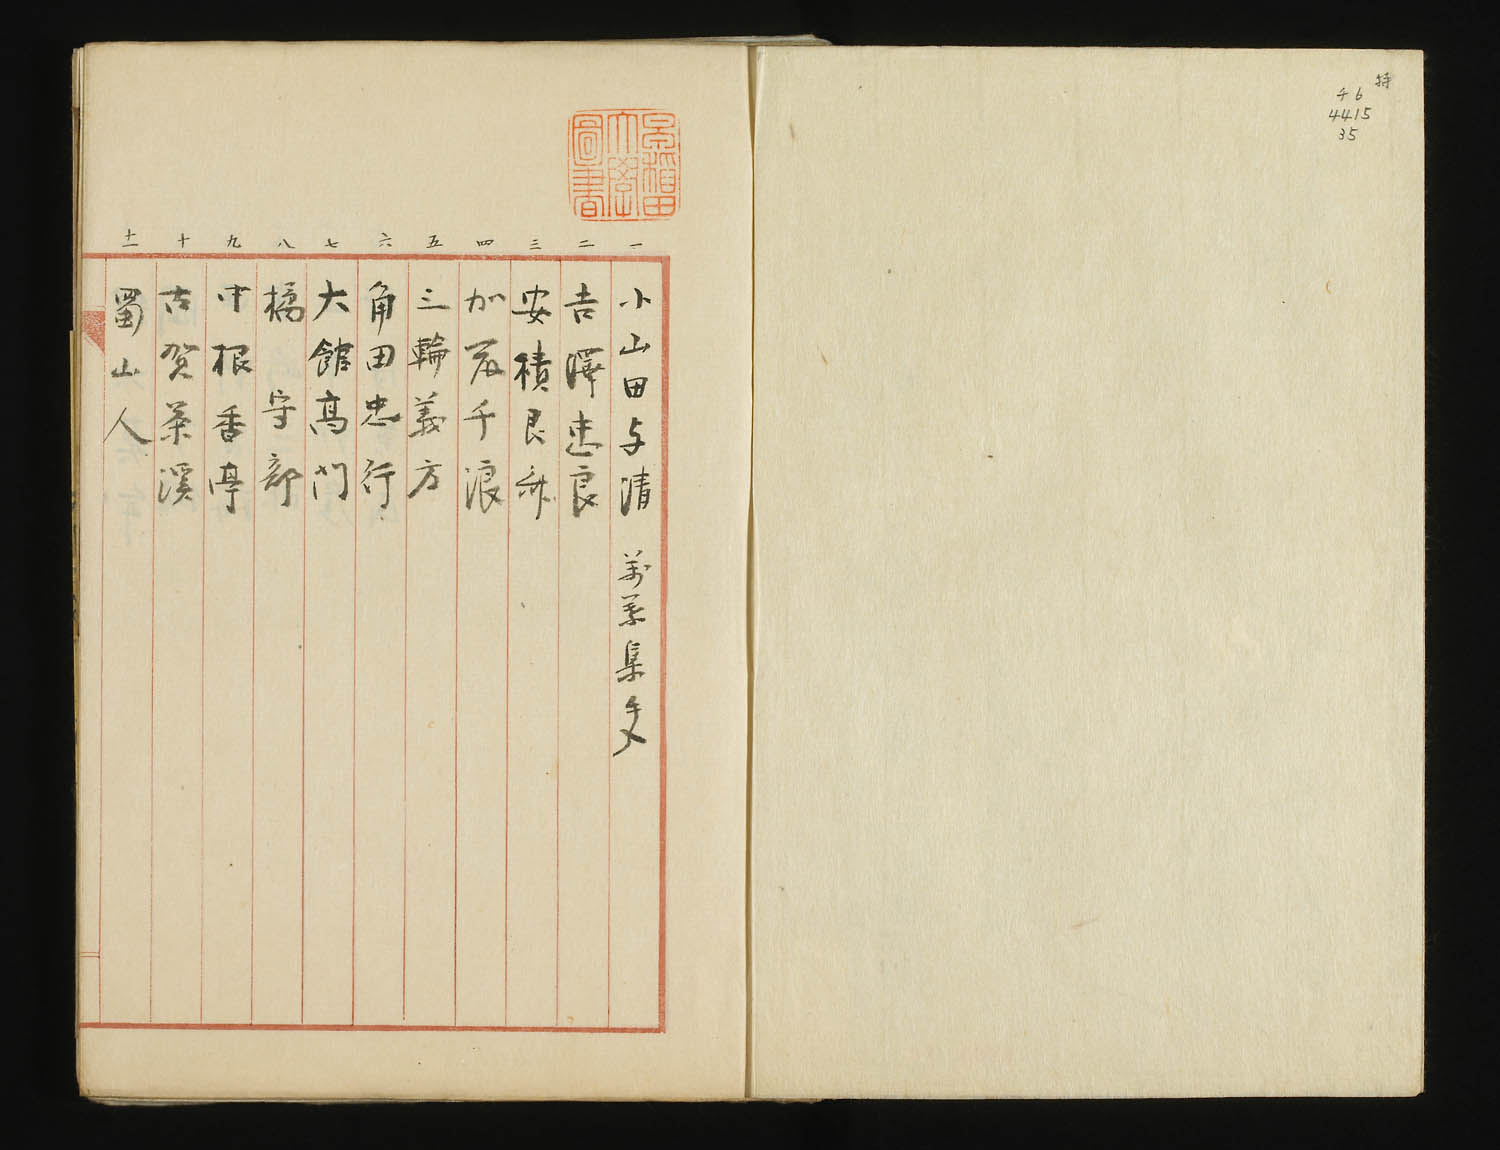 特
チ6
4415
35
早稲田
大學
圖書
一 小山田与清 万葉集文
二 吉澤忠良
三 安積艮斎
四 加茂千浪
五 三輪義方
六 角田忠行
七 大館高門
八 橘守部
九 中根香亭
十 古賀茶溪
十一 蜀山人